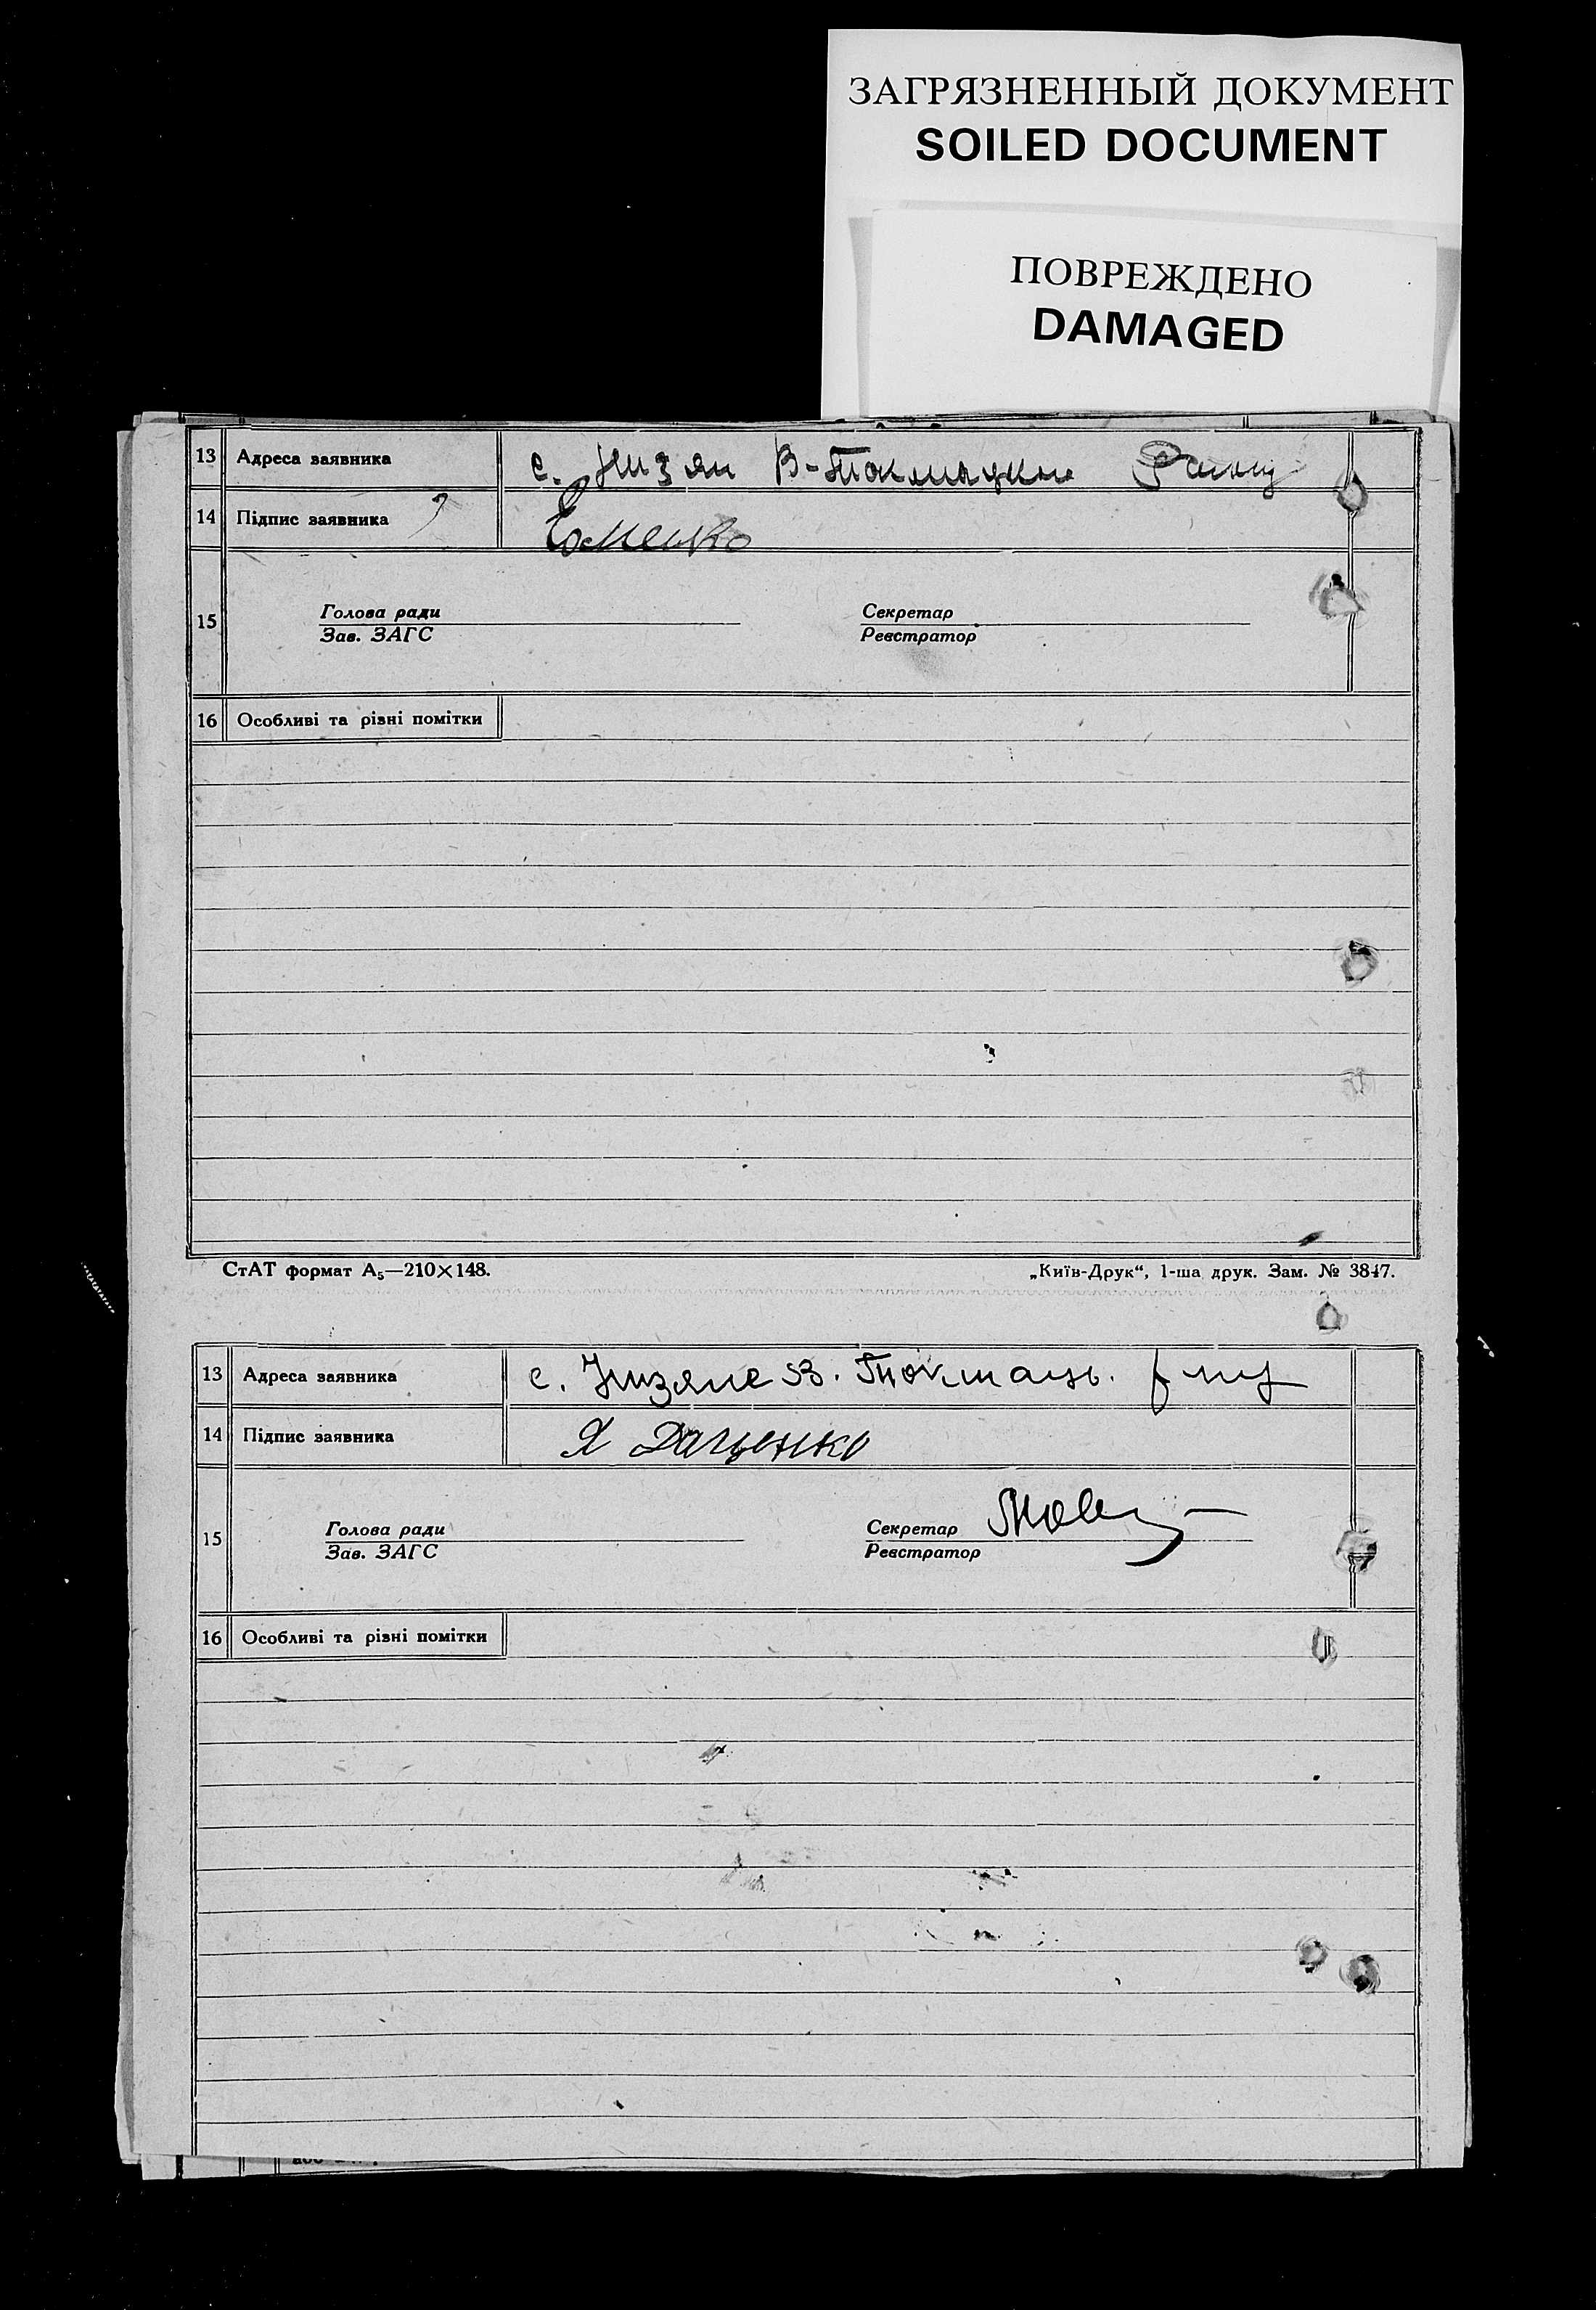 ЗАГРЯЗНЕННЫЙ ДОКУМЕНТ
SOILED DOCUMENT
ПОВРЕЖДЕНО
DAMAGED
13 Адреса заявника с. Низян В-Токмацким
14 Підпис заявника
15 Голова ради Секретар
Зав. ЗАГС Реєстратор
16 Особливі та різні помітки
СтАТ формат А₅—210×148. „Київ-Друк“, 1-ша друк. Зам. № 3847.
13 Адреса заявника с. Низяне В. Токмаць.
14 Підпис заявника Я Даценко
15 Голова ради Секретар
Зав. ЗАГС Реєстратор
16 Особливі та різні помітки